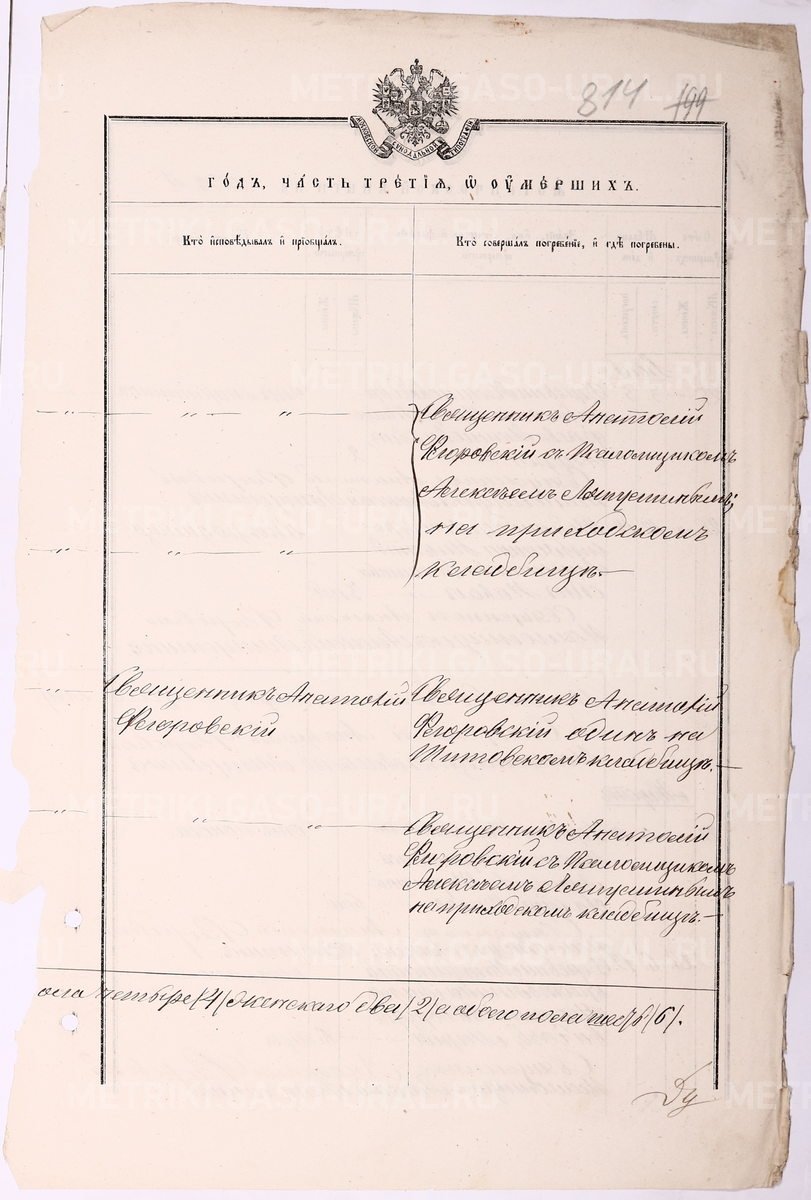 814 199
МОСКОВСКОЙ СѴНОДАЛЬНОЙ ТИПОГРАФІИ
ГО́ДЪ, ЧА́СТЬ ТРЕ́ТІѦ, Ѡ҆ ОУ҆МЕ́РШИХЪ.
Кто̀ и҆сповѣ́дывалъ и҆ пріобща́лъ.
Кто̀ соверша́лъ погребе́ніе, и҆ гдѣ̀ погребены̀.
— " — " — "
Священникъ Анатолій
Флоровскій съ Псаломщикомъ
Алексѣемъ Ляпустинымъ;
на приходскомъ
— " — " — "
кладбищѣ.—
— " — "
Священникъ Анатолій
Флоровскій
Священникъ Анатолій
Флоровскій одинъ на
Титовскомъ кладбищѣ.—
— " — " — "
Священникъ Анатолій
Флоровскій съ Псаломщикомъ
Алексѣемъ Ляпустинымъ
на приходскомъ кладбищѣ.—
ола четыре /4/ женскаго два /2/ а обоего пола шесть /6/.
METRIKI.GASO-URAL.RU